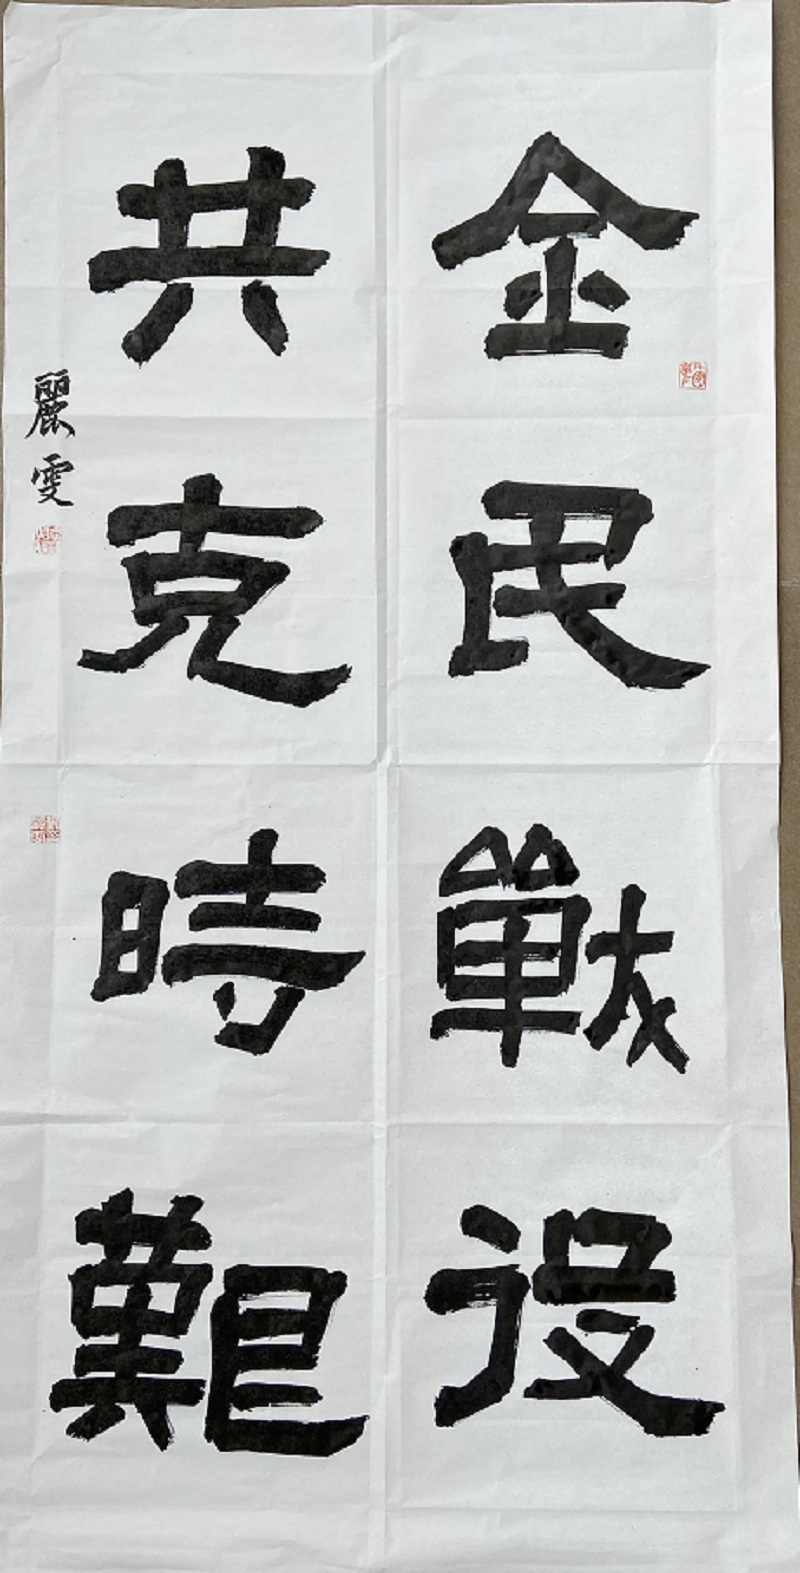 金民戰役
共克時難
麗雯